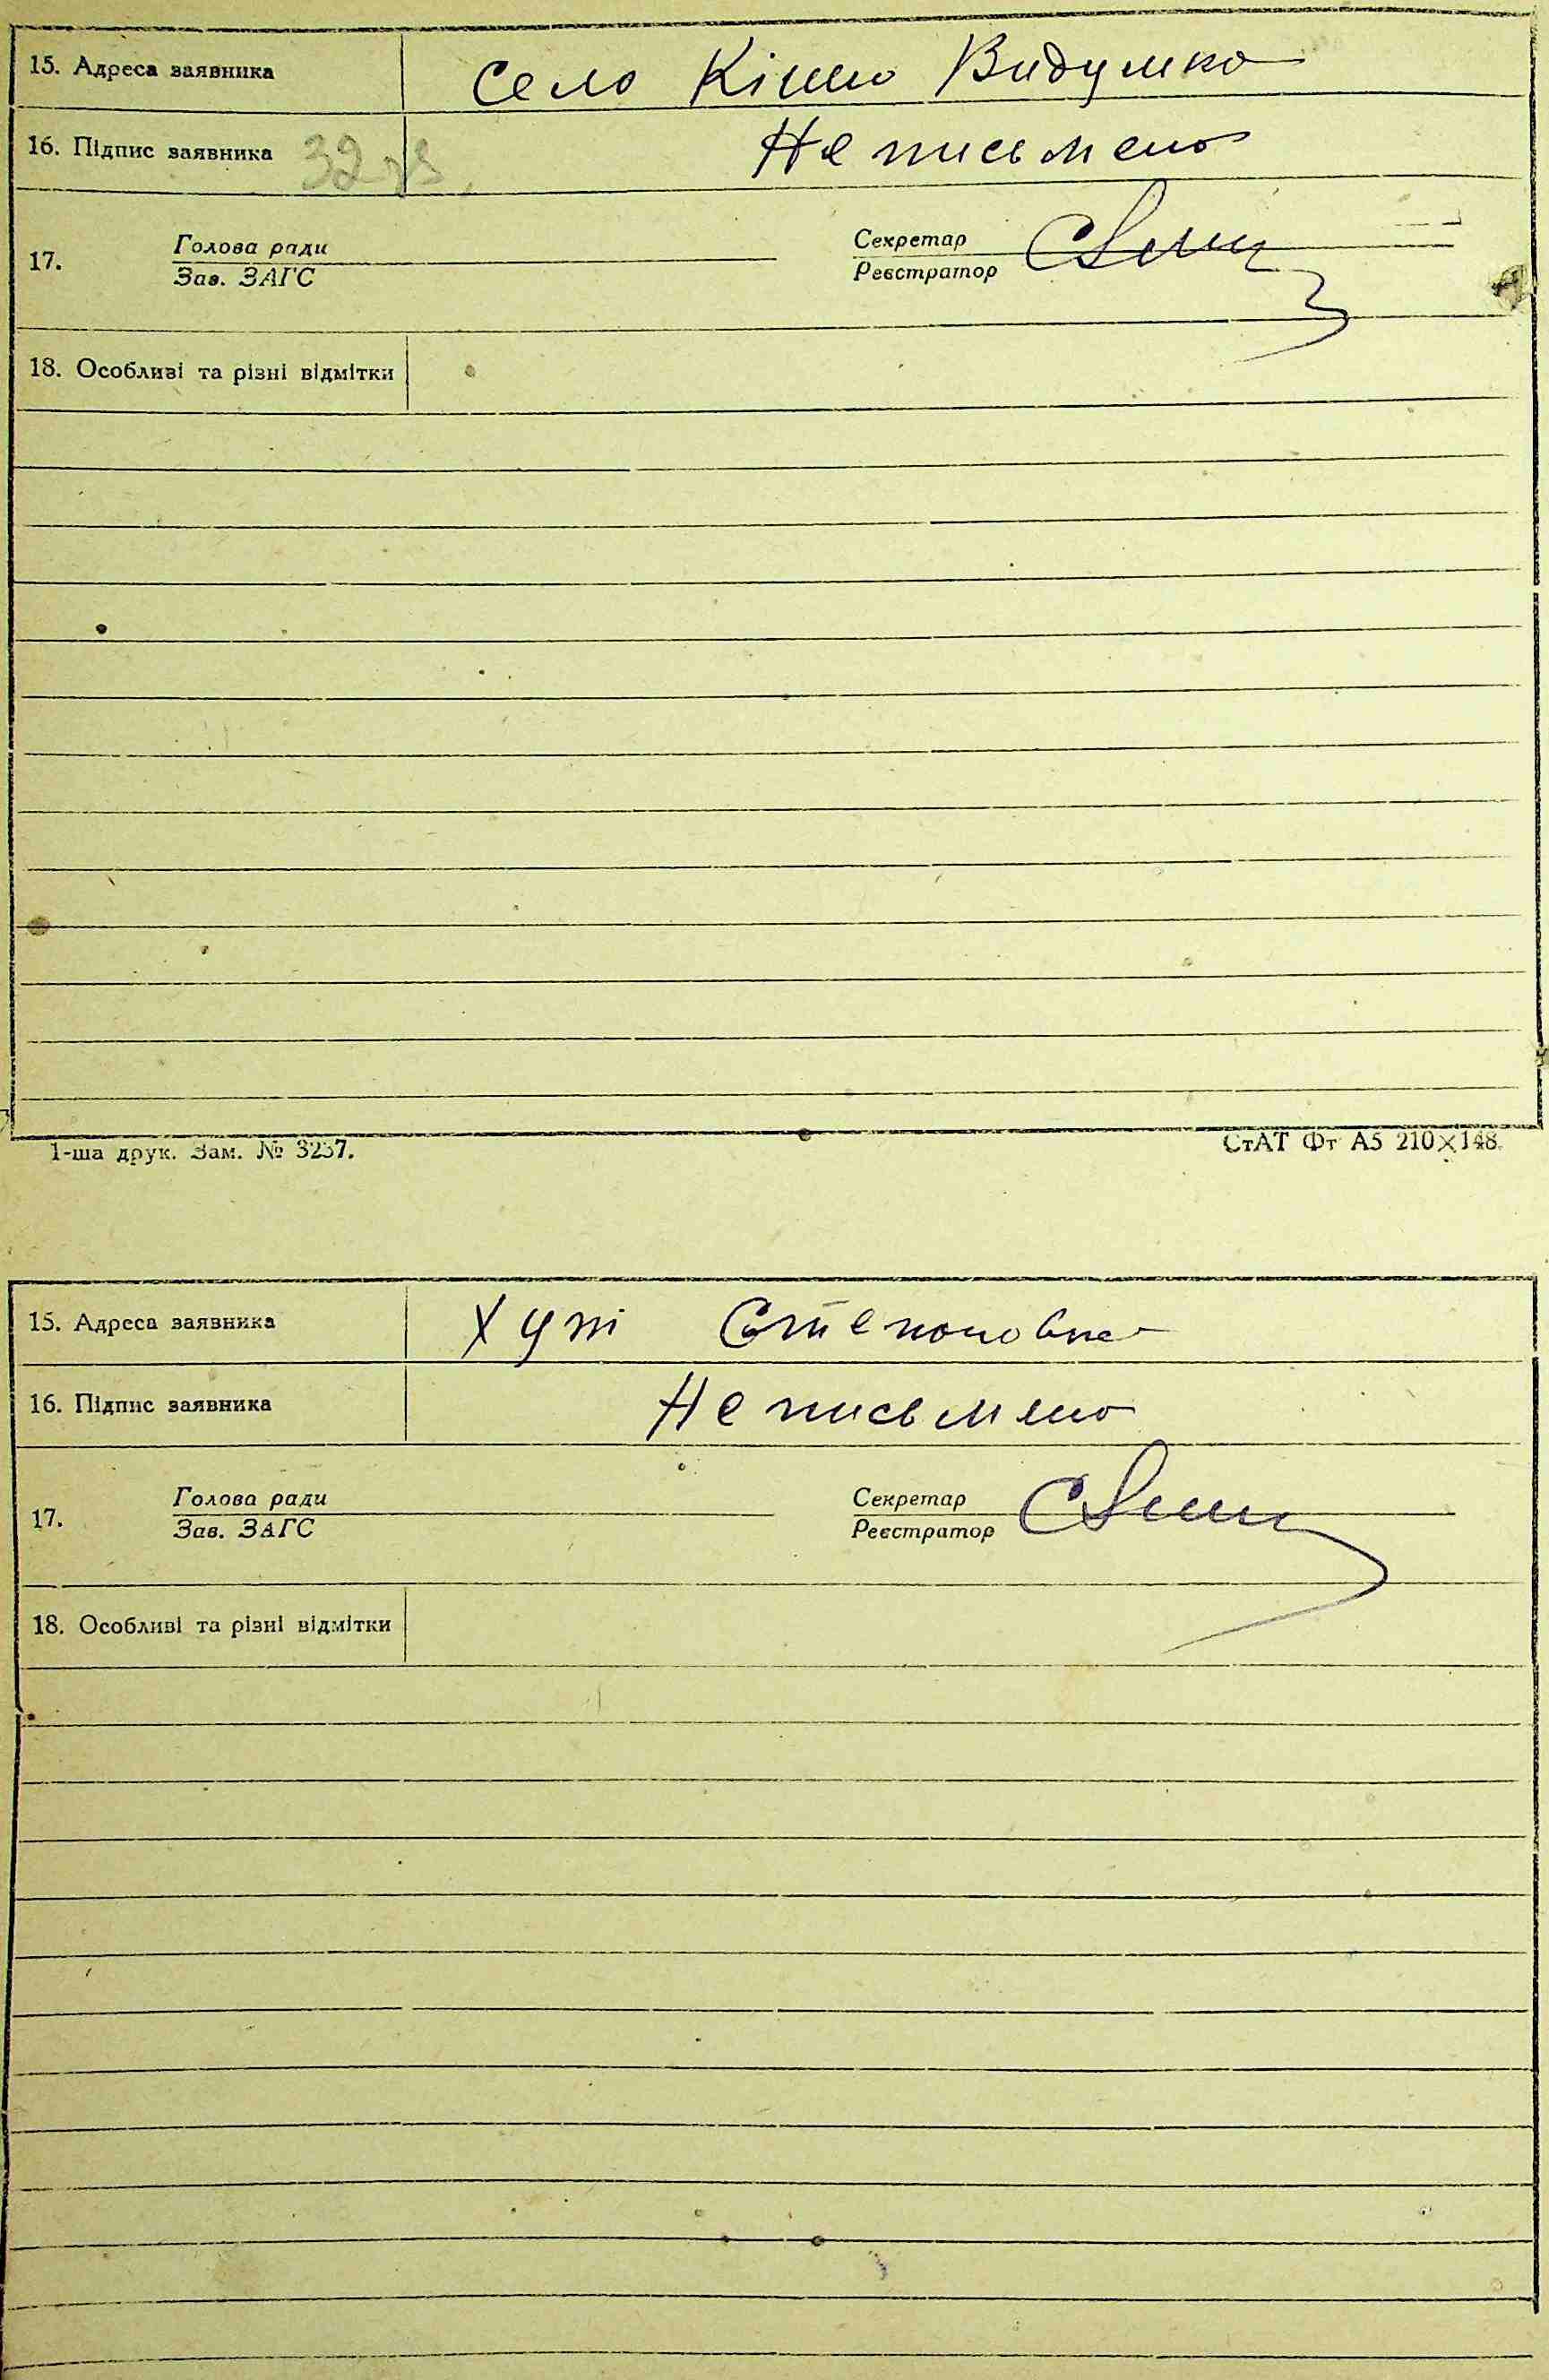 15. Адреса заявника Село Кішно Видумка
16. Підпис заявника Не письмено
17. Голова ради Секретар
Зав. ЗАГС Реєстратор
18. Особливі та різні відмітки
1-ша друк. Зам. № 3237. СтАТ Фт А5 210×148.
15. Адреса заявника Хут Степоновка
16. Підпис заявника Не письмено
17. Голова ради Секретар
Зав. ЗАГС Реєстратор
18. Особливі та різні відмітки